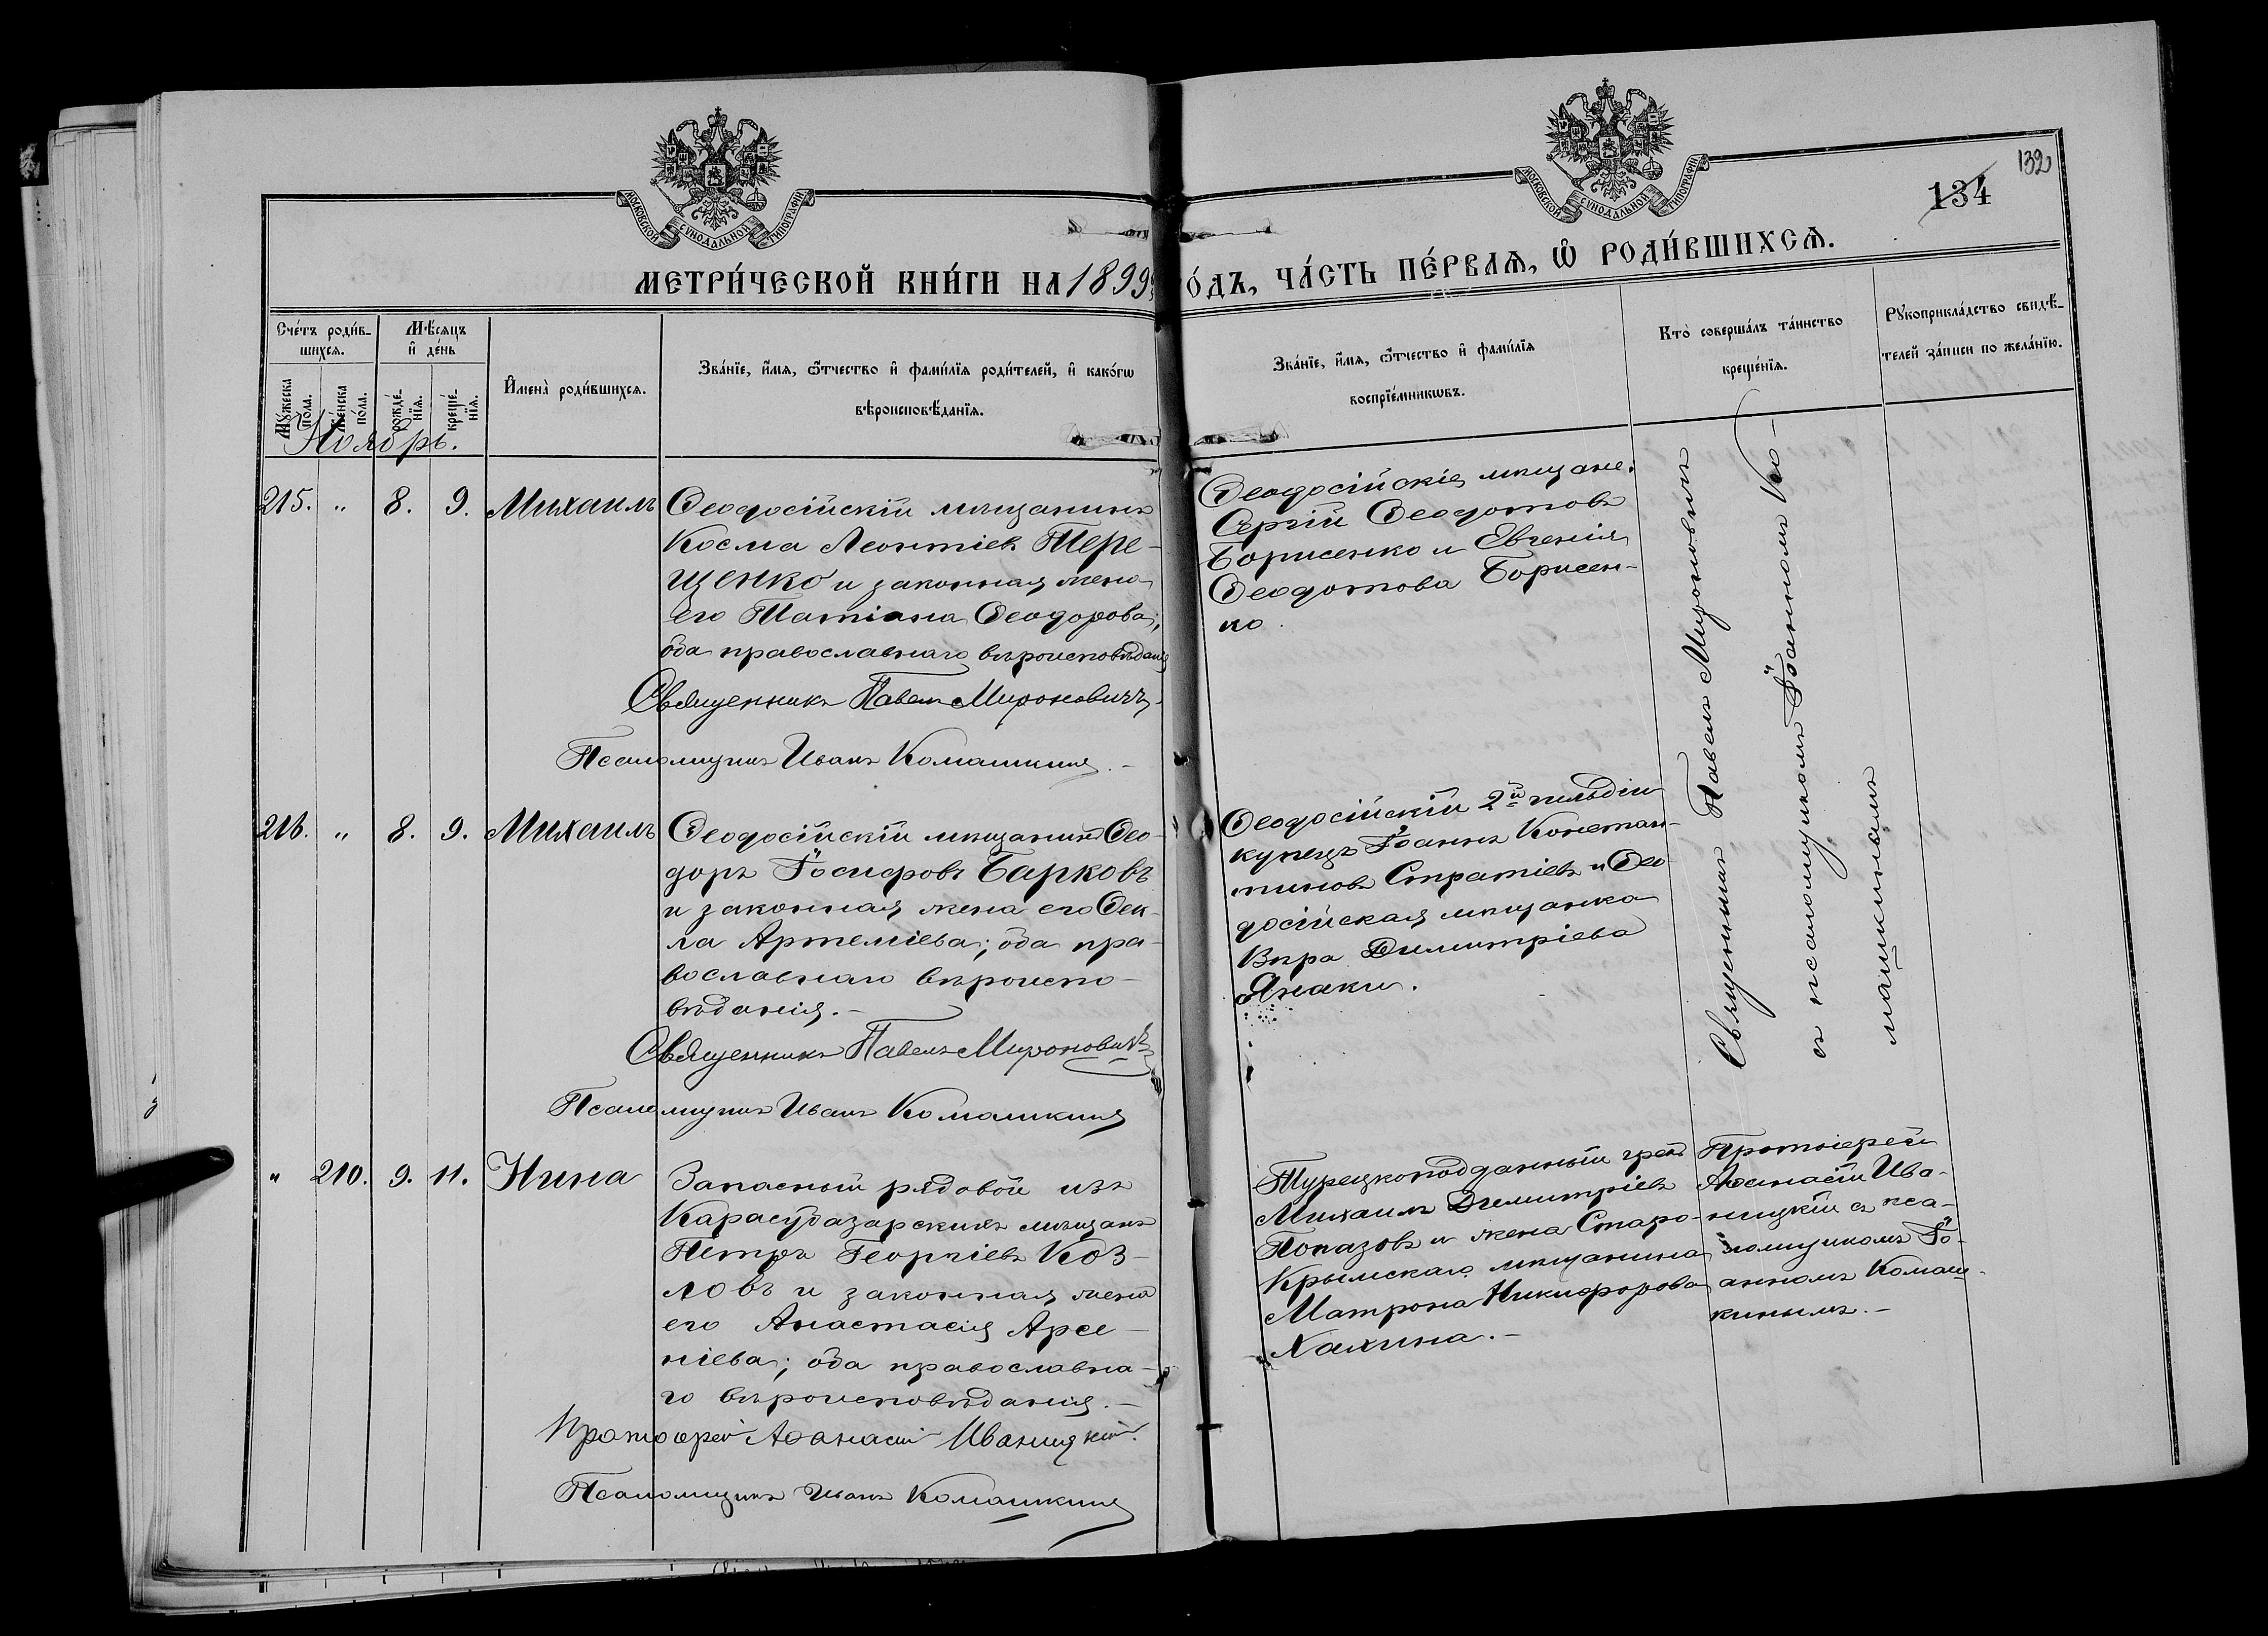 МОСКОВСКОЙ СУНОДАЛЬНОЙ ТИПОГРАФІИ
МОСКОВСКОЙ СУНОДАЛЬНОЙ ТИПОГРАФІИ
132
134
МЕТРИ́ЧЕСКОЙ КНИ́ГИ НА 1899 ГО́ДЪ, ЧА́СТЬ ПЕ́РВАѦ, Ѡ РОДИ́ВШИХСѦ.
Сче́тъ роди́в-
шихсѧ.
Мѣ́сѧцъ
и҆ де́нь
Му́жеска
по́ла.
Же́нска
по́ла.
рожде́-
нїѧ.
креще́-
нїѧ.
И҆мена̀ роди́вшихсѧ.
Зва́нїе, и҆́мѧ, ѻ҆́тчество и҆ фами́лїѧ роди́телей, и҆ како́гѡ
вѣроисповѣ́данїѧ.
Зва́нїе, и҆́мѧ, ѻ҆́тчество и҆ фами́лїѧ
воспрїе́мникѡвъ.
Кто̀ соверша́лъ та́инство
креще́нїѧ.
Рꙋкоприкла́дство свидѣ́-
телей за́писи по жела́нїю.
Ноябрь.
215. " 8. 9. Михаилъ
Ѳеодосійскій мѣщанинъ
Косма Леонтіевъ Тере-
щенко и законная жена
его Татіана Ѳеодорова;
оба православнаго вѣроисповѣданія
Священникъ Павелъ Мироновичъ.
Псаломщикъ Иванъ Комашкинъ.
Ѳеодосійскіе мѣщане:
Сергій Ѳеодотовъ
Борисенко и Евгенія
Ѳеодотова Борисен-
ко.
Священникъ Павелъ Мироновичъ
съ псаломщикомъ Іоанномъ Ко-
машкинымъ
216. " 8. 9. Михаилъ
Ѳеодосійскій мѣщанинъ Ѳео-
доръ Іосифовъ Барковъ
и законная жена его Ѳек-
ла Артеміева; оба пра-
вославнаго вѣроиспо-
вѣданія.
Священникъ Павелъ Мироновичъ
Псаломщикъ Иванъ Комашкинъ
Ѳеодосійскій 2й гильдіи
купецъ Іоаннъ Констан-
тиновъ Стратіевъ и Ѳео
досійская мѣщанка
Вѣра Димитріева
Янаки.
" 210. 9. 11. Нина
Запасный рядовой изъ
Карасубазарскихъ мѣщанъ
Петръ Георгіевъ Коз-
ловъ и законная жена
его Анастасія Арсе-
ніева; оба православна-
го вѣроисповѣданія.
Протоіерей Аѳанасій Иваницкій.
Псаломщикъ Иванъ Комашкинъ
Турецкоподданный грекъ
Михаилъ Димитріевъ
Попазовъ и жена Старо-
Крымскаго мѣщанина
Матрона Никифорова
Халина.
Протоіерей
Аѳанасій Ива-
ницкій съ пса-
ломщикомъ Іо-
анномъ Комаш-
кинымъ.